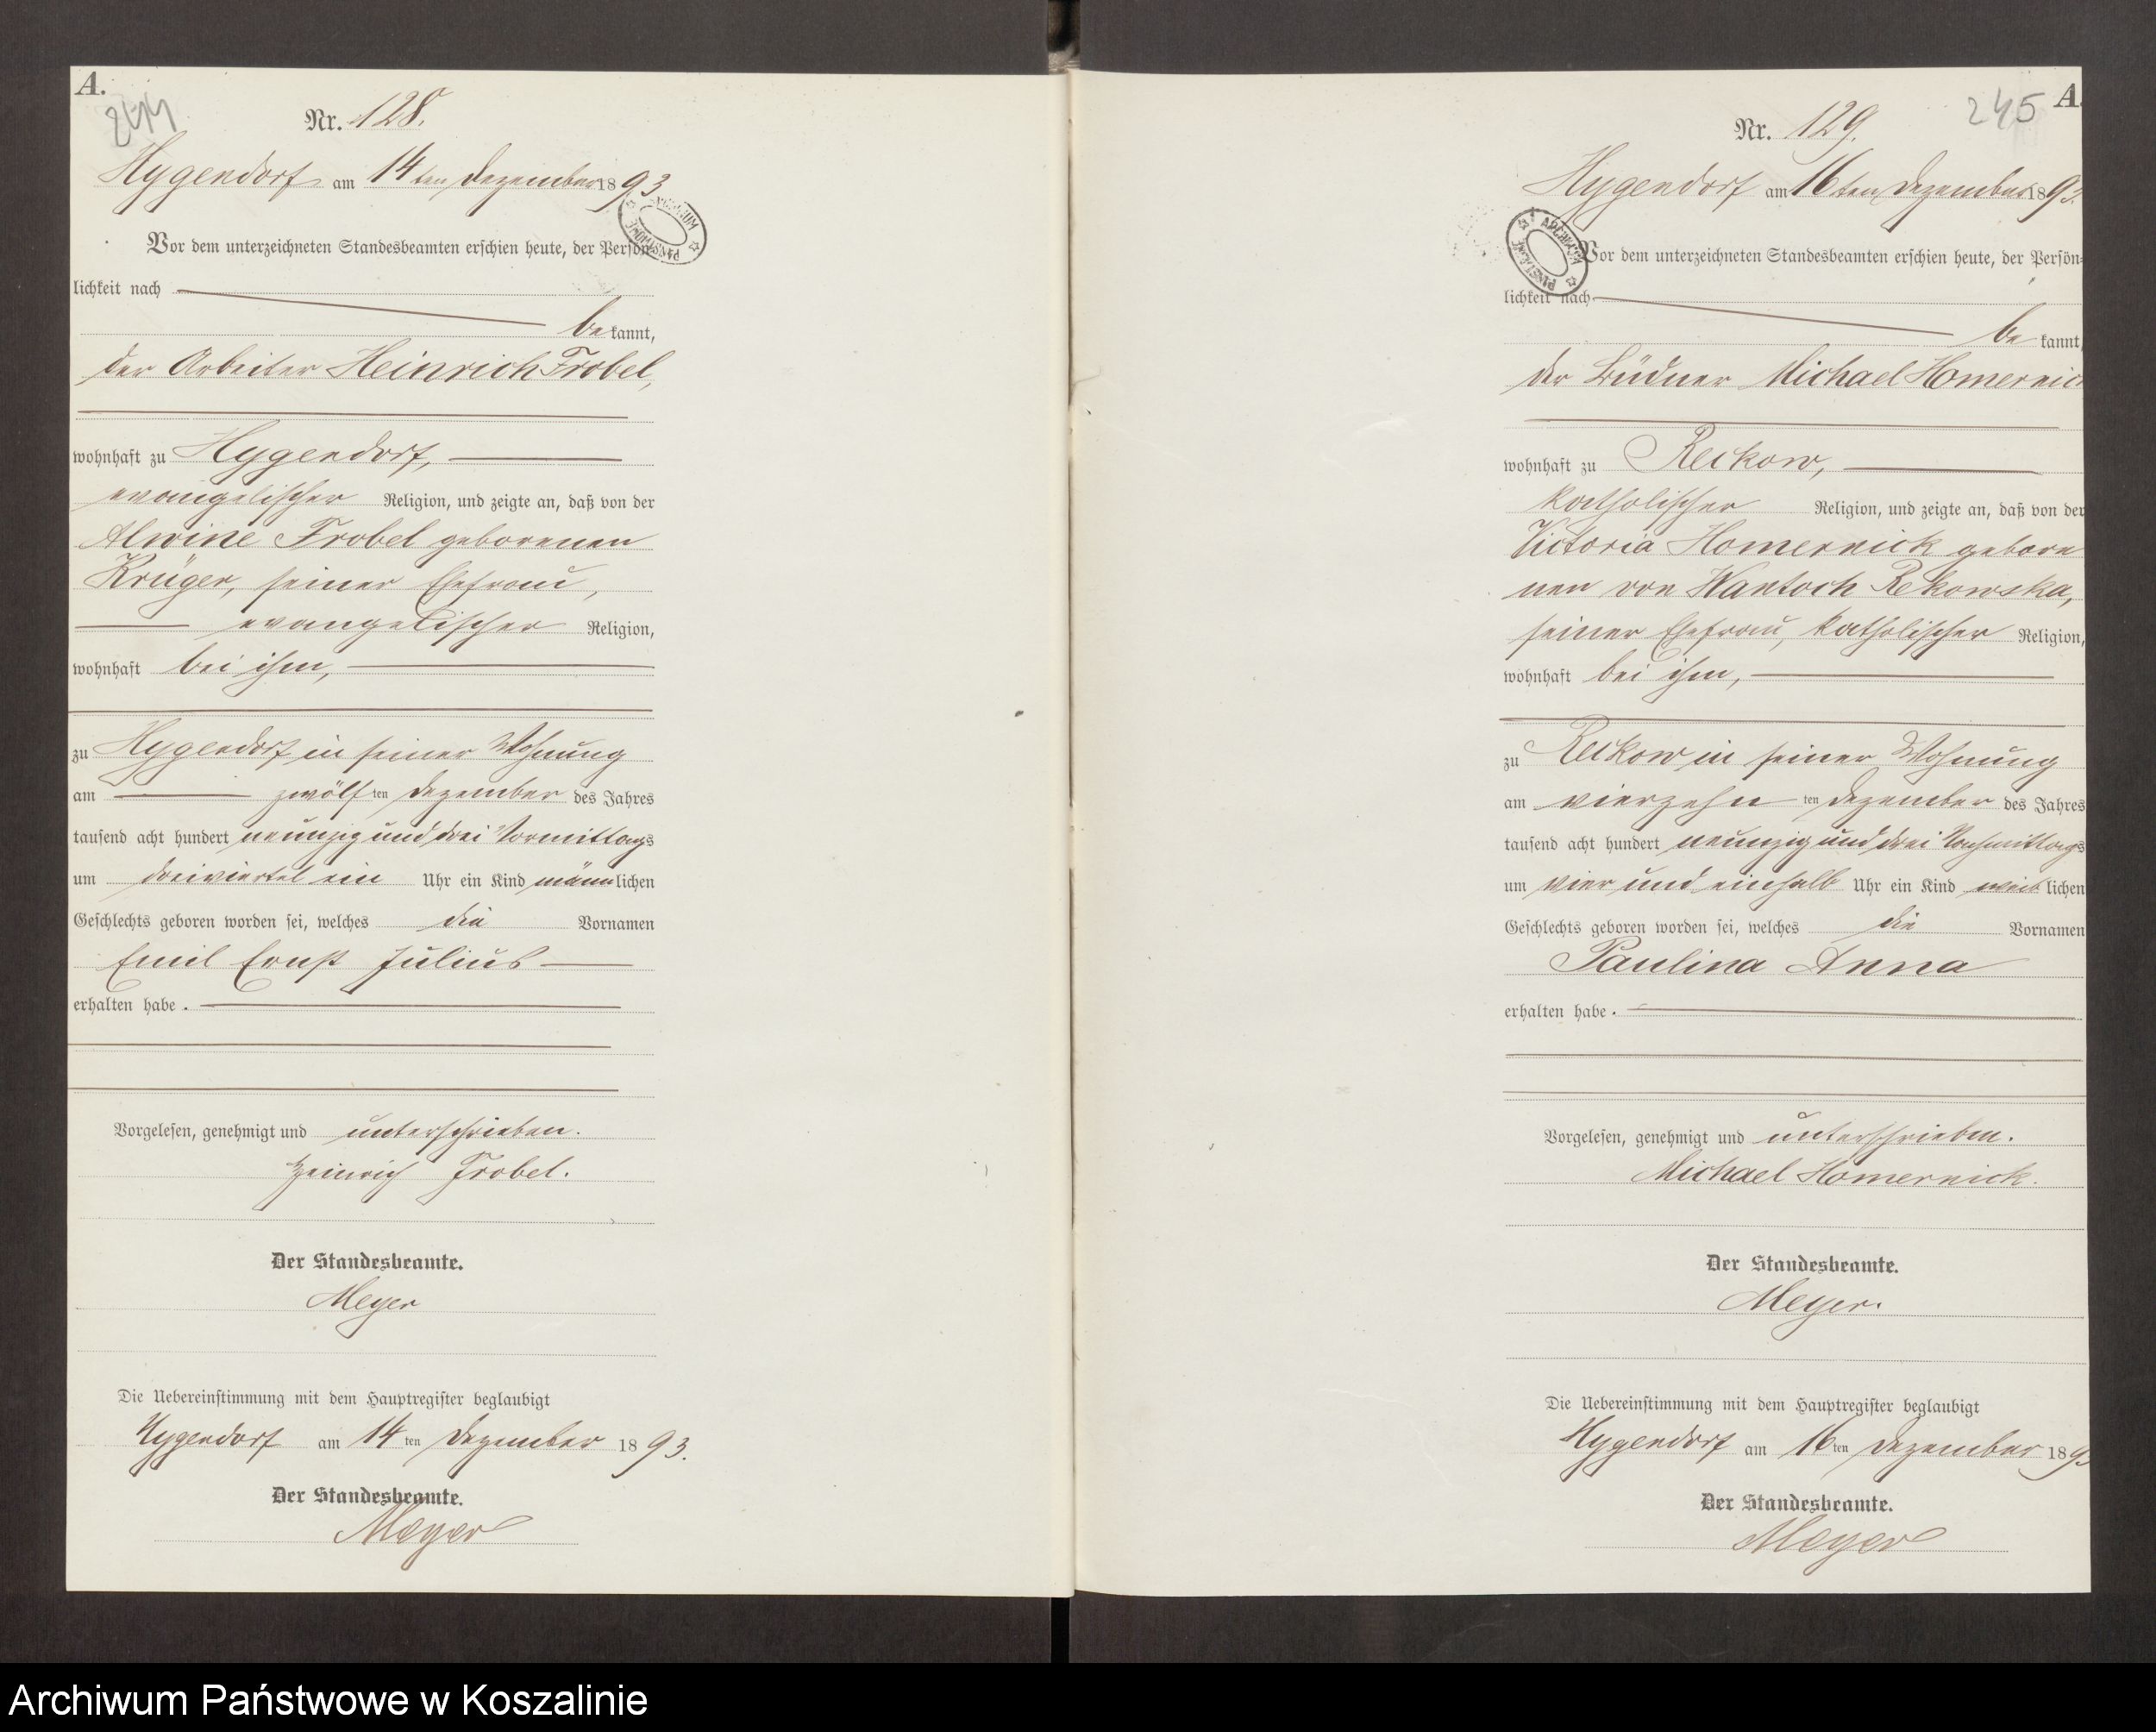 A.
244
Nr. 128.
Hygendorf am 14ten Dezember 1893
Vor dem unterzeichneten Standesbeamten erschien heute, der Persön-
lichkeit nach
be kannt,
der Arbeiter Heinrich Frobel,
wohnhaft zu Hygendorf,
evangelischer Religion, und zeigte an, daß von der
Alwine Frobel geborenen
Krüger, seiner Ehefrau,
evangelischer Religion,
wohnhaft bei ihm,
zu Hygendorf in seiner Wohnung
am zwölf ten Dezember des Jahres
tausend acht hundert neunzig und drei Vormittags
um dreiviertel ein Uhr ein Kind männlichen
Geschlechts geboren worden sei, welches die Vornamen
Emil Ernst Julius
erhalten habe.
Vorgelesen, genehmigt und unterschrieben.
Heinrich Frobel.
Der Standesbeamte.
Meyer
Die Uebereinstimmung mit dem Hauptregister beglaubigt
Hygendorf am 14 ten Dezember 1893.
Der Standesbeamte.
Meyer
A.
245
Nr. 129.
Hygendorf am 16ten Dezember 1893.
Vor dem unterzeichneten Standesbeamten erschien heute, der Persön-
lichkeit nach
be kannt,
der Büdner Michael Homernick
wohnhaft zu Reckow,
katholischer Religion, und zeigte an, daß von der
Victoria Homernick gebore
nen von Wantoch Rekowska,
seiner Ehefrau, katholischer Religion,
wohnhaft bei ihm,
zu Reckow in seiner Wohnung
am vierzehn ten Dezember des Jahres
tausend acht hundert neunzig und drei Nachmittags
um vier und einhalb Uhr ein Kind weib lichen
Geschlechts geboren worden sei, welches die Vornamen
Paulina Anna
erhalten habe.
Vorgelesen, genehmigt und unterschrieben.
Michael Homernick.
Der Standesbeamte.
Meyer.
Die Uebereinstimmung mit dem Hauptregister beglaubigt
Hygendorf am 16 ten Dezember 1893
Der Standesbeamte.
Meyer
Archiwum Państwowe w Koszalinie